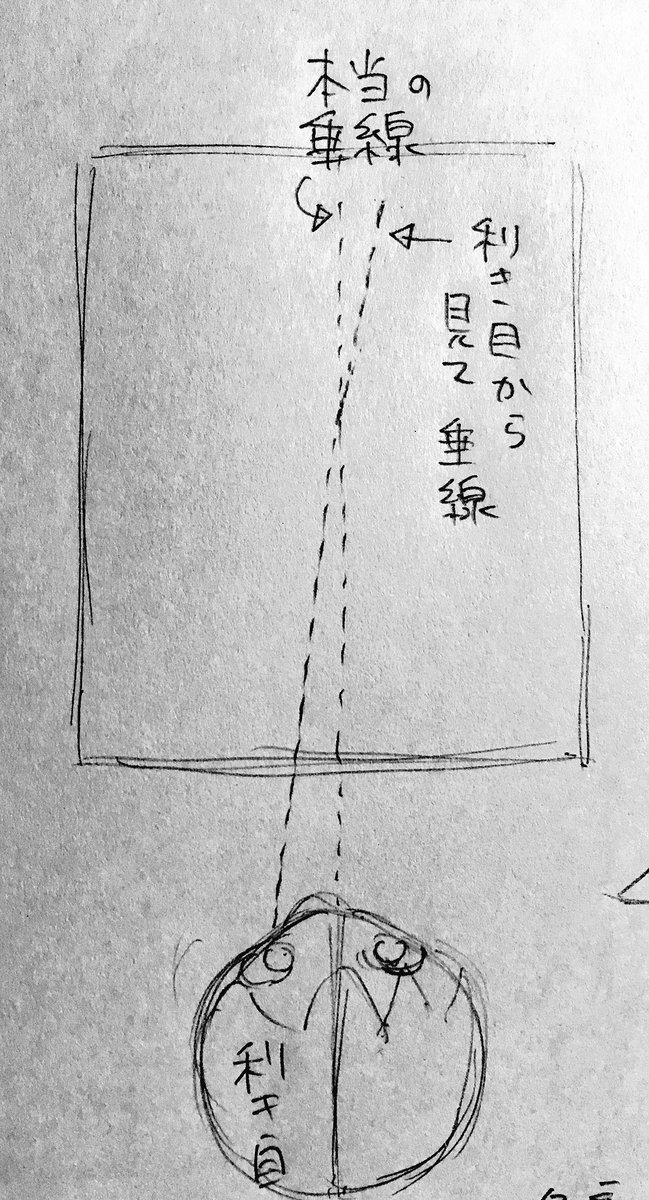 本当の
垂線
利き目から
見て垂線
利き目